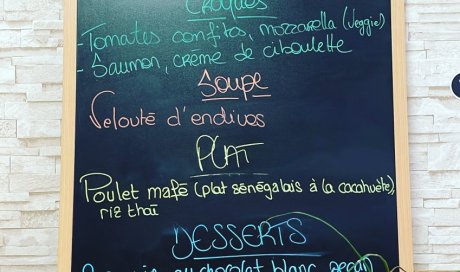 Croques
- Tomates confites, mozzarella (Veggie)
- Saumon, crème de ciboulette
Soupe
Velouté d'endives
PLAT
Poulet mafé (plat sénégalais à la cacahuète),
riz thaï
DESSERTS
au chocolat blanc pecan